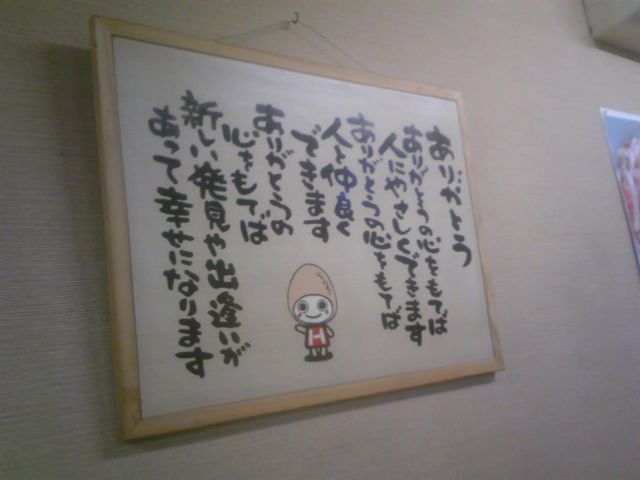 ありがとう
ありがとうの心をもてば
人にやさしくできます
ありがとうの心をもてば
人と仲良く
できます
ありがとうの
心をもてば
新しい発見や出逢いが
あって幸せになります
H